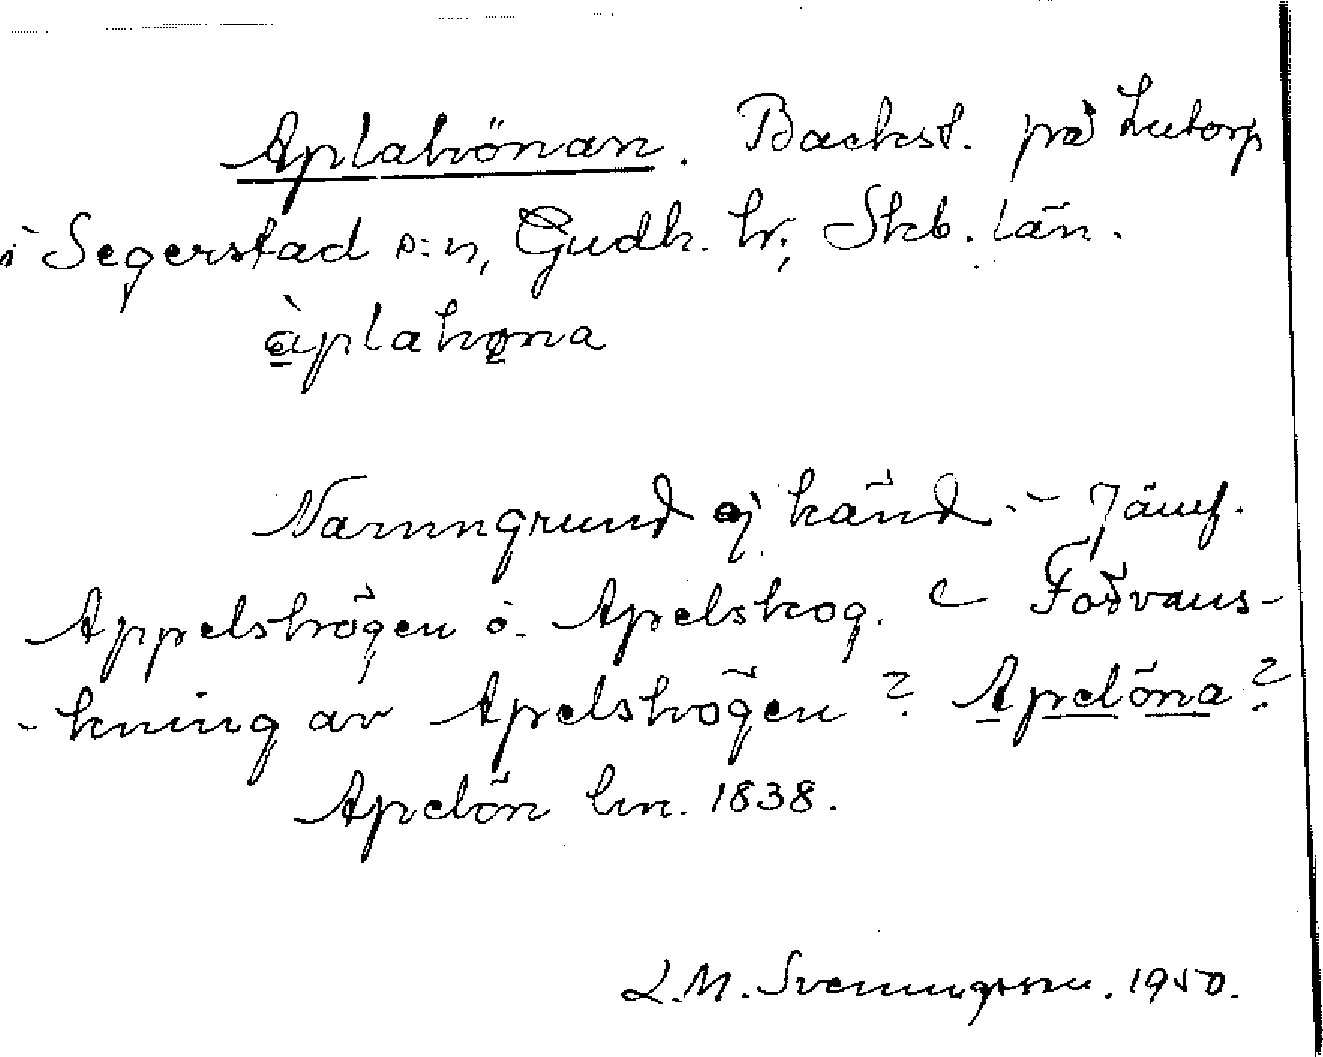 Aplahönan. Backst. på Lutorp
i Segerstad s:n, Gudh. hr, Skb. län.
àplahøna
Namngrund ej känd. - Jämf.
Appelshögen o. Apelskog. Förvans-
-kning av Apelshögen? Apelöna?
Apelön hm. 1838.
L.M. Svenungsson. 1950.